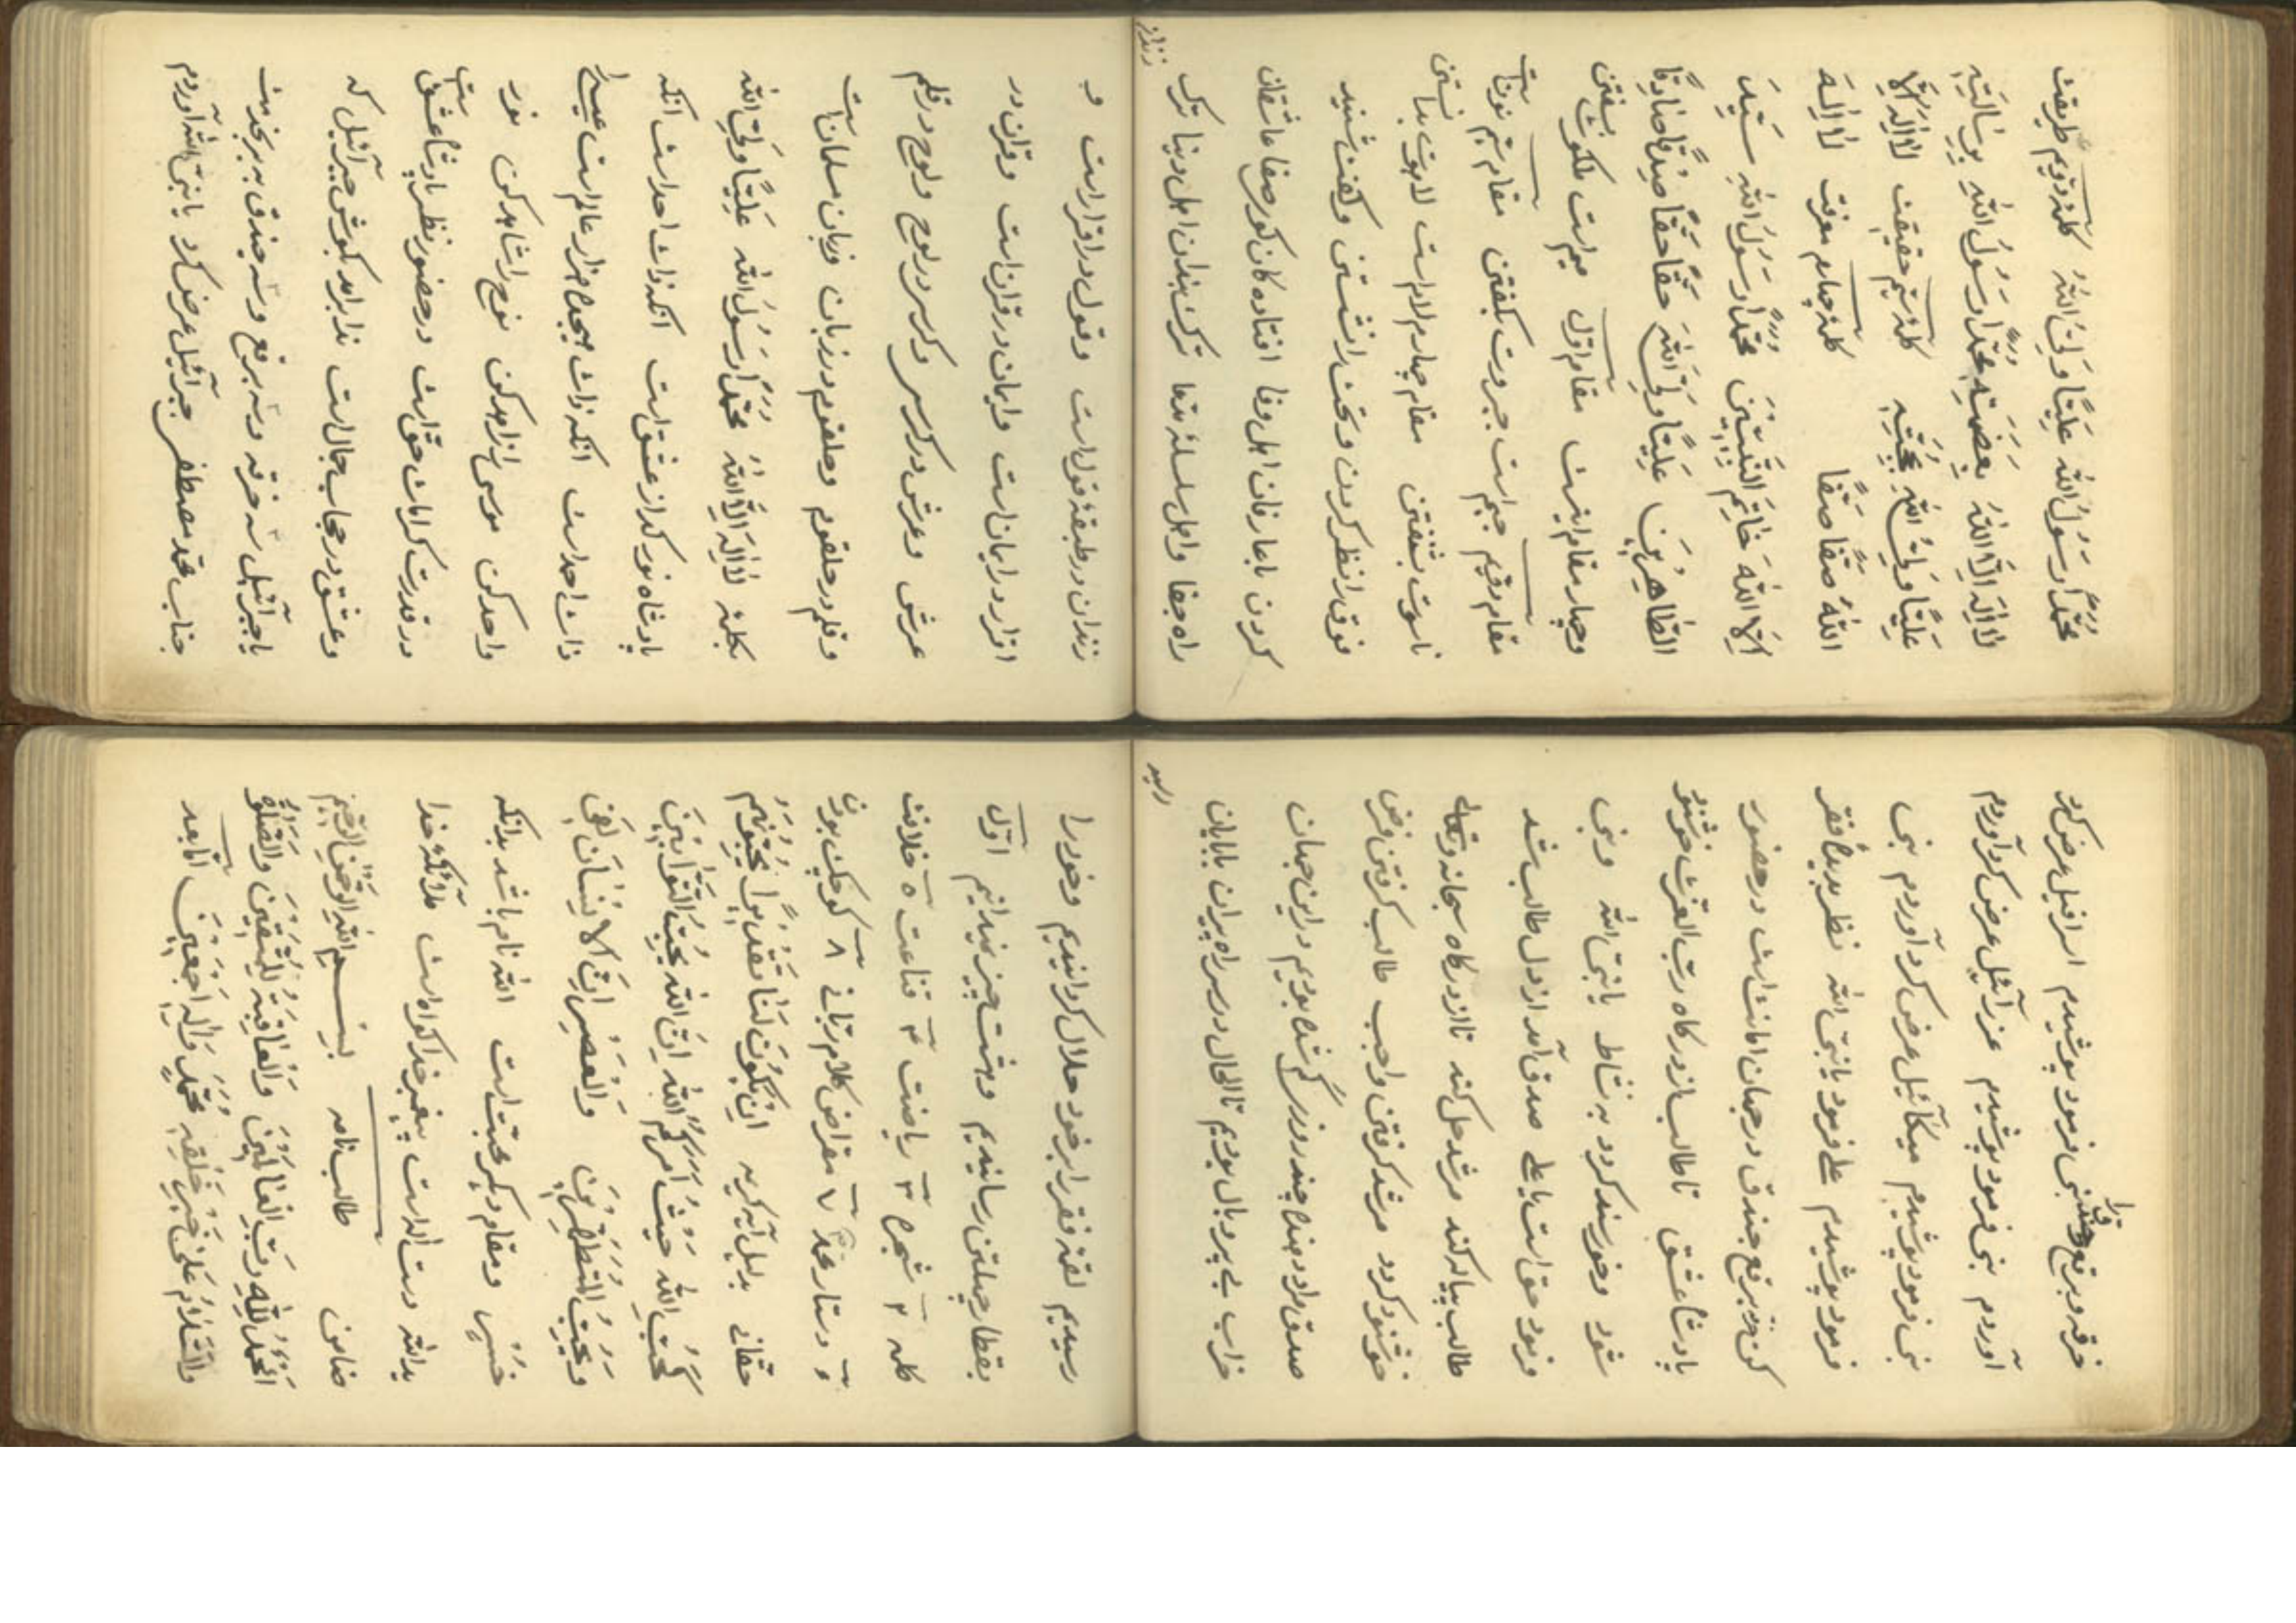 محمّداً رَسُولُ اللهِ عَلِيّاً وَلِيُّ اللهُ كلمهٔ دويم طريقت
لا اِلهَ اِلّا اللهُ بِعِصْمَتِهِ محمّداً رَسُولُ اللهِ بِرِسالَتِهِ
عَلِيّاً وَلِيُّ اللهِ بِمُحَبَّتِهِ كلمهٔ سيّم حقيقت لا اِلهَ اِلّا
اللهُ صَفّاً صَفّاً كلمهٔ چهارم معرفت لا اِلهَ
اِلّا اللهُ خاتَمَ النَّبِيّينَ محمّداً رَسُولُ اللهِ سَيِّدَ
الطّاهِرينَ عَلِيّاً وَلِيَّ اللهِ حَقّاً حَقّاً صِدْقاً صادِقاً
و چهار مقام اينست مقام اوّل ميم است ملكوت بسفتن
مقام دويم جيم است جبروت بكفتن مقام سيّم نونست
ناسوت بشفتن مقام چهارم لام است لاهوت بدانستن
فوق را نظر كردن و تحت را نشستن و كفت شنيد
كردن با عارفان اهل وفا افتاده كان كور صفا عاشقان
راه جفا و اهل سلسلهٔ بقا ترك بندان اهل دنيا ترك
زندان
زندان در طبقهٔ قول است و قول در اقرار است و
اقرار در ايمان است و ايمان در قرآن است و قرآن در
عرش و عرش در كرسى و كرسى در لوح و لوح در قلم
و قلم در حلقوم و حلقوم در زبان و زبان مسلمانست
بكلمهٔ لا اِلهَ اِلّا اللهُ محمّداً رَسُولُ اللهِ عَلِيّاً وَلِيُّ الله
پادشاه نور كداز عشق است انكه ذات احد است انكه
ذات احد است انكه ذات هجده هزار عالم است عيسى را
واحد كن موسى را زاهد كن نوح را شاهد كن نور
در قدرت كرامات حق است در حضور نظر پادشاه عشقست
و عشق در حجاب جمال است ندا برامد بكوش جبرآئيل كه
يا جبرآئيل سه خرقه و سه برقع و سه جندق به بر بخدمت
جناب محمّد مصطفى جبرآئيل عرض كرد يا نبىّ الله آوردم
خرقه و برقع و جندق نبى فرمود پوشيدم اسرافيل عرض كرد
آوردم نبى فرمود پوشيدم عزرآئيل عرض كرد آوردم
نبى فرمود پوشيدم ميكآئيل عرض كرد آوردم نبى
فرمود پوشيدم على فرمود يا نبىّ الله نظر بديده فقر
كن خرقه برقع جندق در جهان امانت است در حضور
پادشاه عشق تا طالب از دركاه ربّ العزّت خوشنود
شود و خورسند كردد به نشاط يا نبىّ الله و نبى
فرمود حق است يا على صدق آمد از دل طالب شد
طالب پياله كند مرشد حل كند تا از دركاه سبحانه و تعالى
خوشنود كردد مرشد كرفتن واجب طالب كرفتن فرض
صدق داد بنده چند روزى كم شده بوديم در اين جهان
خراب بى پر و بال بوديم تا الحال در سراه پيران با پايان
رسيد
رسيديم لقمهٔ فقر را بر خود حلال كردانيديم و خود را
بقطار چهلتن رسانيديم و هشت چيز ميدانيم اوّل
كلمه ۲ شجره ۳ رياضت ۴ قناعت ۵ خلافت
۶ دستار محمّد ۷ مقراض كلام ربّانى ۸ كوچك بودن
حقّانى بدليل آيه كريمه اِنْ يَكُونَ لَنا نَقْداً بِوا يُحِبُّونَهُمْ
كَحُبِّ اللهِ حَيْثُ اَمَرَكُمُ اللهُ اِنَّ اللهَ يُحِبُّ التَّوّابينَ
وَ يُحِبُّ الْمُتَطَهِّرينَ وَالْعَصْرِ اِنَّ الْاِنْسانَ لَفى
خُسْرٍ و مقام ديكر محبّت است الله نام باشد بدانكه
يد الله دست الله است پيغمبر خدا كواه است ملآئكهٔ خدا
ضامن طالب نامه بِسْمِ اللهِ الرَّحْمنِ الرَّحيمِ
اَلْحَمْدُ لِلّهِ رَبِّ الْعالَمينَ وَالْعاقِبَةُ لِلْمُتَّقينَ وَالصَّلوةُ
وَالسَّلامُ عَلى خَيْرِ خَلْقِهِ مُحَمَّدٍ وَالِهِ اَجْمَعينَ امّا بعد